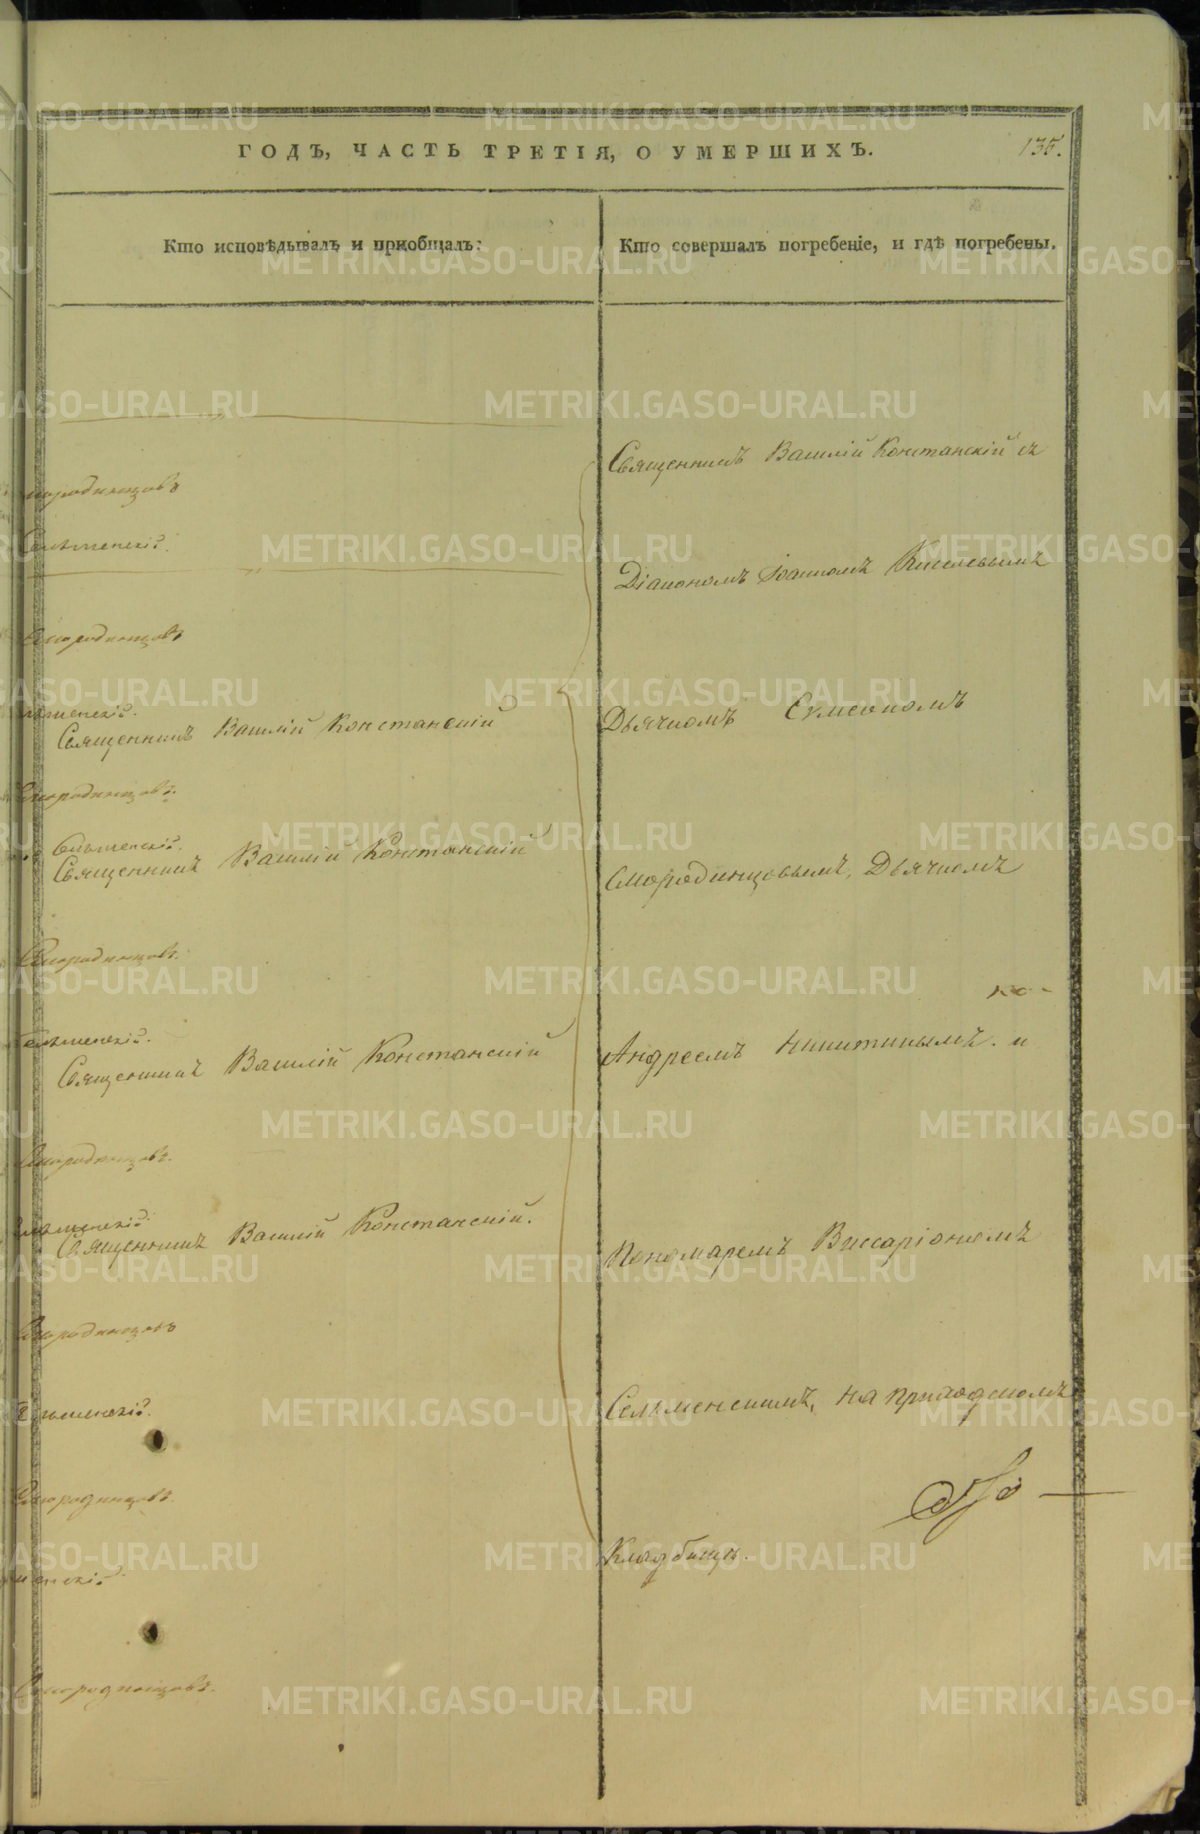 ГОДЪ, ЧАСТЬ ТРЕТІЯ, О УМЕРШИХЪ.
135.
Кто исповѣдывалъ и пріобщалъ:
Кто совершалъ погребеніе, и гдѣ погребены.
Священникъ Василій Констанскій съ
Діакономъ Іоанномъ Киселевымъ
Дьячкомъ Симеономъ
Смородинцовымъ, Дьячкомъ
Андреемъ Никитинымъ. и
Пономаремъ Виссаріономъ
Селъменскимъ, на приходскомъ
Кладбищѣ.
Смородинцовъ
Селъменскій.
Смородинцовъ
Священникъ Василій Констанскій
Смородинцовъ.
Селъменскій.
Священникъ Василій Констанскій
Смородинцовъ.
Селъменскій.
Священникъ Василій Констанскій
Смородинцовъ.
Селъменскій.
Священникъ Василій Констанскій.
Смородинцовъ
Селъменскій.
Смородинцовъ.
Смородинцовъ.
METRIKI.GASO-URAL.RU